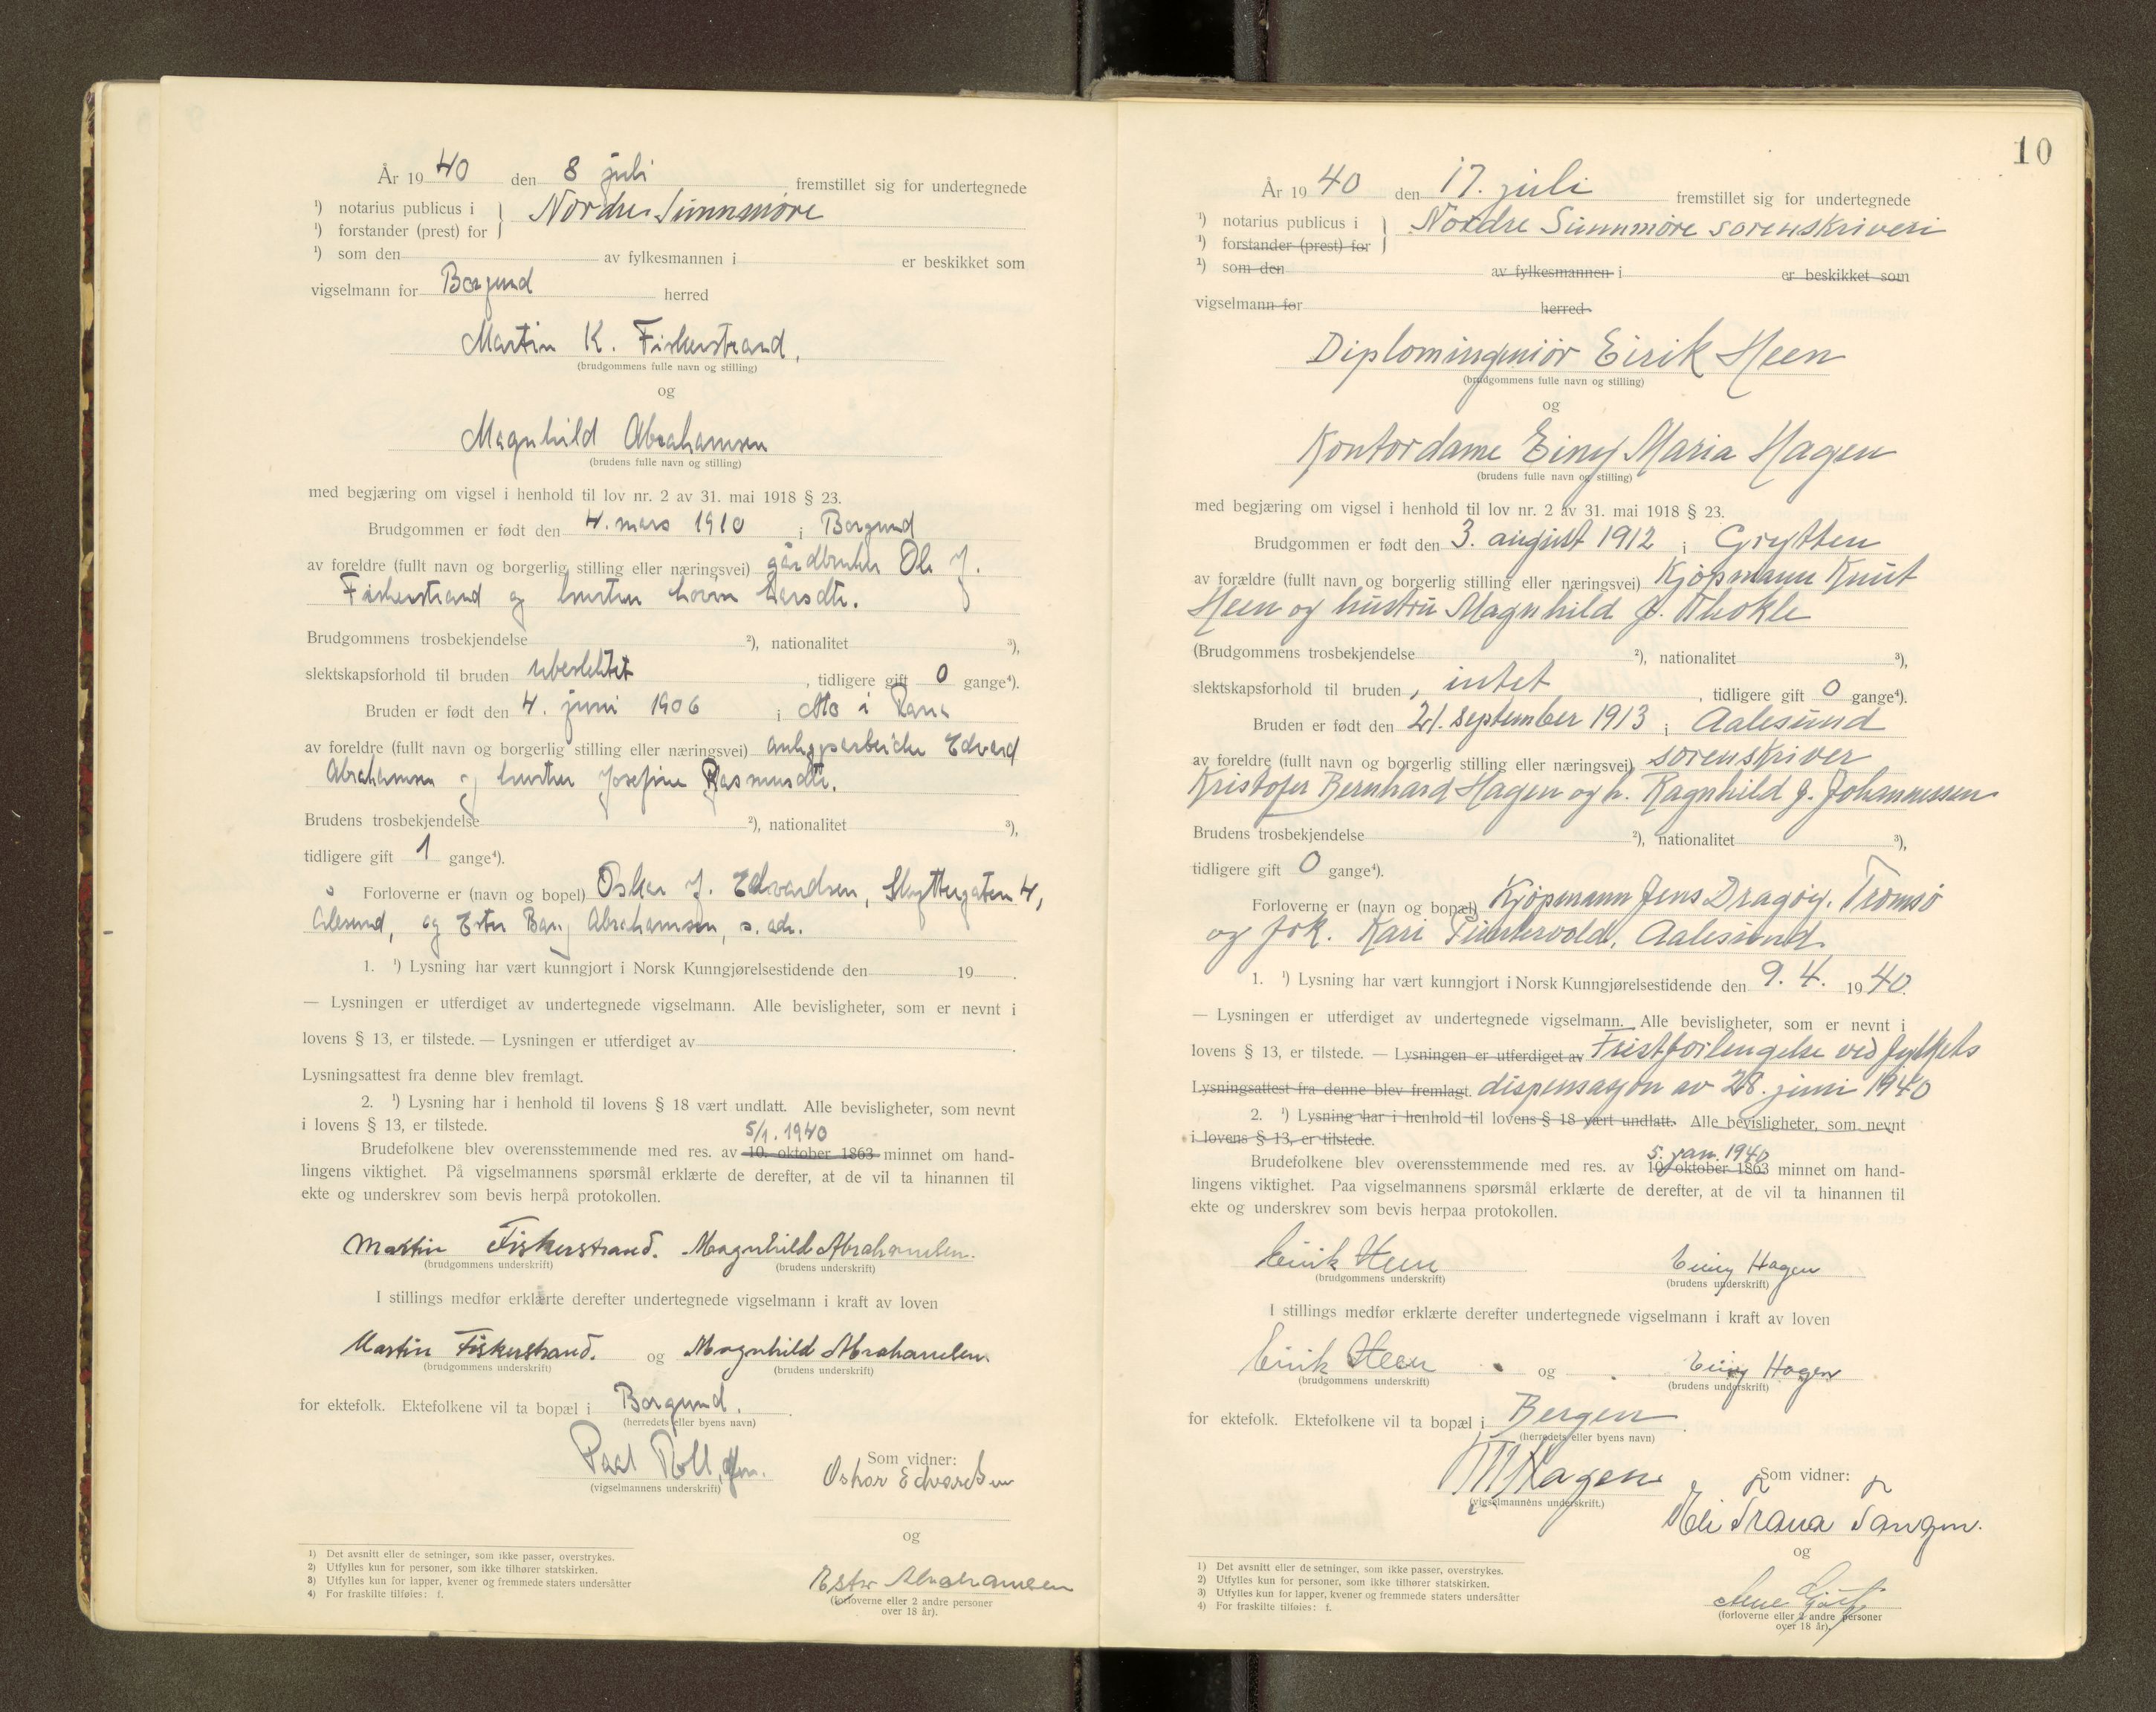 År 19 40 den 8 juli fremstillet sig for undertegnede
¹) notarius publicus i } Nordre Sunnmøre
¹) forstander (prest) for
¹) som den av fylkesmannen i er beskikket som
vigselmann for Borgund herred
Martin K. Fiskerstrand,
(brudgommens fulle navn og stilling)
og
Magnhild Abrahamsen
(brudens fulle navn og stilling)
med begjæring om vigsel i henhold til lov nr. 2 av 31. mai 1918 § 23.
Brudgommen er født den 4. mars 1910 i Borgund
av foreldre (fullt navn og borgerlig stilling eller næringsvei) gårdbruker Ole J.
Fiskerstrand og hustru
Brudgommens trosbekjendelse ²), nationalitet ³),
slektskapsforhold til bruden ubeslektet, tidligere gift 0 gange⁴).
Bruden er født den 4. juni 1906 i Mo i Rana
av foreldre (fullt navn og borgerlig stilling eller næringsvei) anleggsarbeider Edvard
Abrahamsen og hustru Josefine Rasmusdtr.
Brudens trosbekjendelse ²), nationalitet ³),
tidligere gift 1 gange⁴).
Forloverne er (navn og bopel) Oskar J. Edvardsen, Skyttergaten 4,
Ålesund, og Ester Abrahamsen, s. adr.
1. ¹) Lysning har vært kunngjort i Norsk Kunngjørelsestidende den 19 .
— Lysningen er utferdiget av undertegnede vigselmann. Alle bevisligheter, som er nevnt i
lovens § 13, er tilstede. — Lysningen er utferdiget av .
Lysningsattest fra denne blev fremlagt.
2. ¹) Lysning har i henhold til lovens § 18 vært undlatt. Alle bevisligheter, som nevnt
i lovens § 13, er tilstede.
5/1. 1940
Brudefolkene blev overensstemmende med res. av 10. oktober 1863 minnet om hand-
lingens viktighet. På vigselmannens spørsmål erklærte de derefter, at de vil ta hinannen til
ekte og underskrev som bevis herpå protokollen.
Martin Fiskerstrand. Magnhild Abrahamsen.
(brudgommens underskrift) (brudens underskrift)
I stillings medfør erklærte derefter undertegnede vigselmann i kraft av loven
Martin Fiskerstrand. og Magnhild Abrahamsen.
(brudgommens underskrift) (brudens underskrift)
for ektefolk. Ektefolkene vil ta bopæl i Borgund.
(herredets eller byens navn)
Paal Roll,
(vigselmannens underskrift)
Som vidner:
Oskar Edvardsen
og
Ester Abrahamsen
(forloverne eller 2 andre personer
over 18 år).
1) Det avsnitt eller de setninger, som ikke passer, overstrykes.
2) Utfylles kun for personer, som ikke tilhører statskirken.
3) Utfylles kun for lapper, kvener og fremmede staters undersåtter
4) For fraskilte tilføies: f.
10
År 19 40 den 17. juli fremstillet sig for undertegnede
¹) notarius publicus i } Nordre Sunnmøre sorenskriveri
¹) forstander (prest) for
¹) som den av fylkesmannen i er beskikket som
vigselmann for herred
Diplomingeniør Eirik Heen
(brudgommens fulle navn og stilling)
og
Kontordame Einy Maria Hagen
(brudens fulle navn og stilling)
med begjæring om vigsel i henhold til lov nr. 2 av 31. mai 1918 § 23.
Brudgommen er født den 3. august 1912 i Grytten
av forældre (fullt navn og borgerlig stilling eller næringsvei) Kjøpmann Knut
Heen og hustru Magnhild f. Thokle
(Brudgommens trosbekjendelse ²), nationalitet ³),
slektskapsforhold til bruden, intet, tidligere gift 0 gange⁴).
Bruden er født den 21. september 1913 i Aalesund
av foreldre (fullt navn og borgerlig stilling eller næringsvei) sorenskriver
Kristofer Bernhard Hagen og h. Ragnhild f. Johannessen
Brudens trosbekjendelse ²), nationalitet ³),
tidligere gift 0 gange⁴).
Forloverne er (navn og bopæl) Kjøpmann Jens Dragøy, Tromsø
og frk. Kari Aalesund
1. ¹) Lysning har vært kunngjort i Norsk Kunngjørelsestidende den 9. 4. 19 40.
— Lysningen er utferdiget av undertegnede vigselmann. Alle bevisligheter, som er nevnt i
lovens § 13, er tilstede. — Lysningen er utferdiget av Fristforlengelse ved fylkets
Lysningsattest fra denne blev fremlagt. dispensasjon av 28. juni 1940
2. ¹) Lysning har i henhold til lovens § 18 vært undlatt. Alle bevisligheter, som nevnt
i lovens § 13, er tilstede.
5. jan. 1940
Brudefolkene blev overensstemmende med res. av 10 oktober 1863 minnet om hand-
lingens viktighet. Paa vigselmannens spørsmål erklærte de derefter, at de vil ta hinannen til
ekte og underskrev som bevis herpaa protokollen.
Eirik Heen Einy Hagen
(brudgommens underskrift) (brudens underskrift)
I stillings medfør erklærte derefter undertegnede vigselmann i kraft av loven
Eirik Heen og Einy Hagen
(brudgommens underskrift) (brudens underskrift)
for ektefolk. Ektefolkene vil ta bopæl i Bergen.
(herredets eller byens navn)
Hagen
(vigselmannens underskrift.)
Som vidner:
og
(forloverne eller 2 andre personer
over 18 år).
1) Det avsnitt eller de setninger, som ikke passer, overstrykes.
2) Utfylles kun for personer, som ikke tilhører statskirken.
3) Utfylles kun for lapper, kvener og fremmede staters undersåtter
4) For fraskilte tilføies: f.